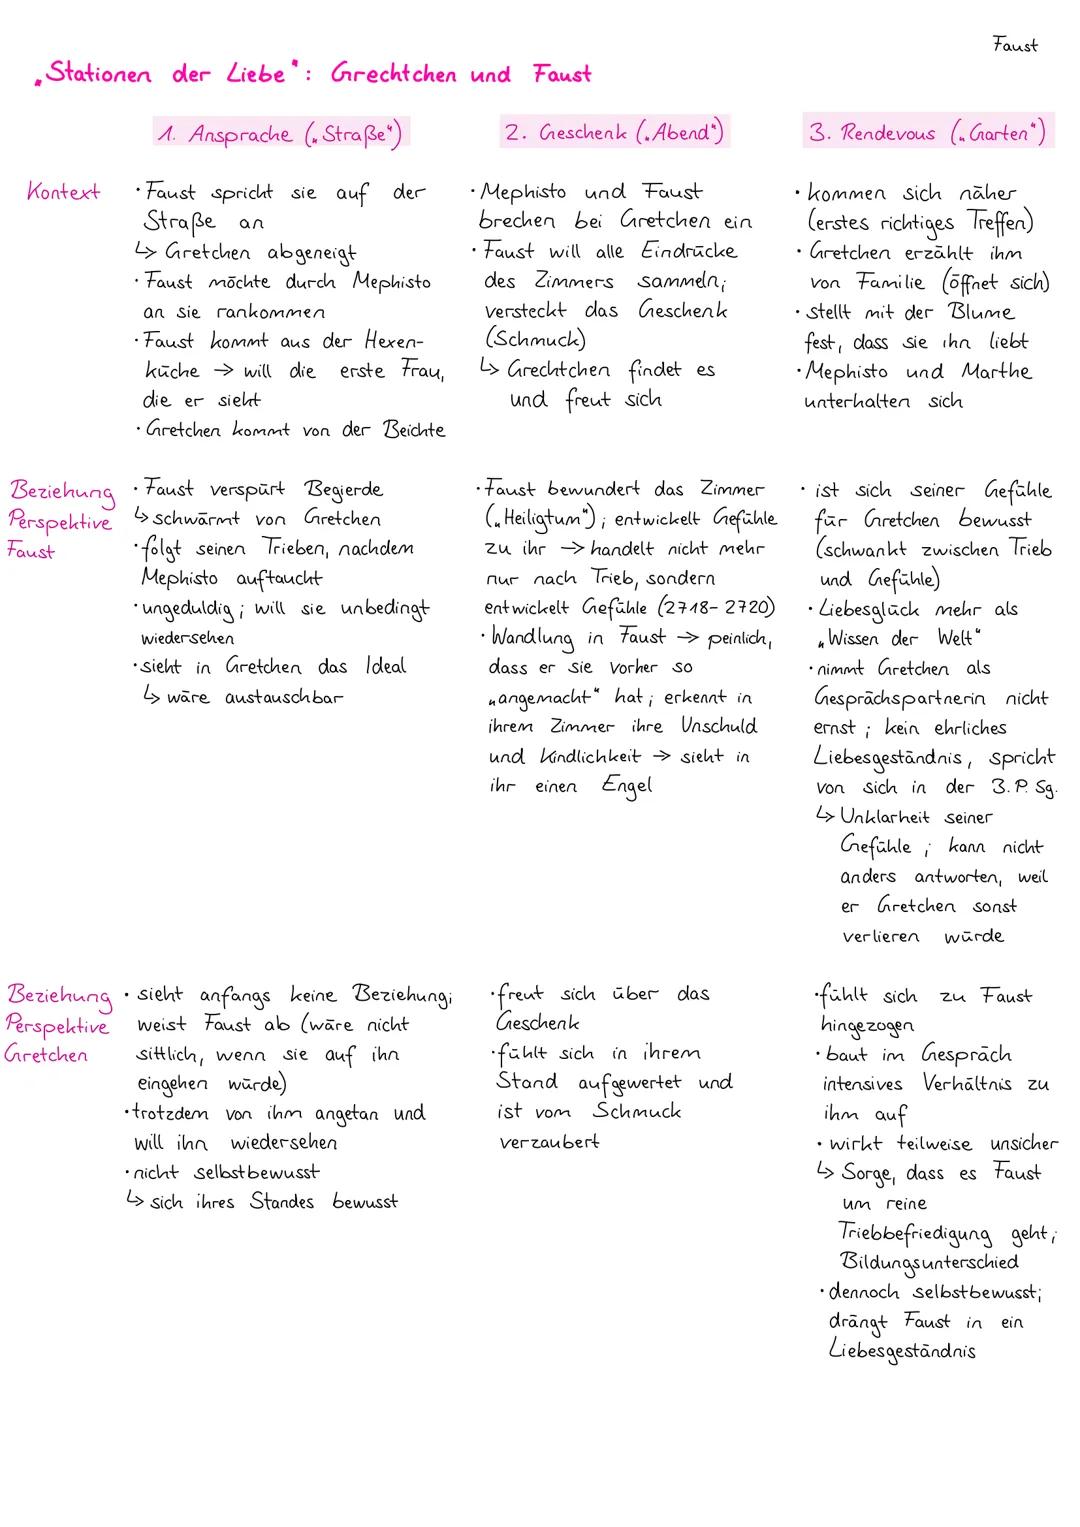 Faust
„Stationen der Liebe": Grechtchen und Faust
1. Ansprache („Straße")
2. Geschenk („Abend")
3. Rendevous („Garten")
Kontext
· Faust spricht sie auf der
Straße an
↳ Gretchen abgeneigt
· Faust möchte durch Mephisto
an sie rankommen
· Faust kommt aus der Hexen-
küche → will die erste Frau,
die er sieht
· Gretchen kommt von der Beichte
· Mephisto und Faust
brechen bei Gretchen ein
· Faust will alle Eindrücke
des Zimmers sammeln;
versteckt das Geschenk
(Schmuck)
↳ Grechtchen findet es
und freut sich
· kommen sich näher
(erstes richtiges Treffen)
· Gretchen erzählt ihm
von Familie (öffnet sich)
· stellt mit der Blume
fest, dass sie ihn liebt
· Mephisto und Marthe
unterhalten sich
Beziehung
Perspektive
Faust
· Faust verspürt Begierde
↳ schwärmt von Gretchen
· folgt seinen Trieben, nachdem
Mephisto auftaucht
· ungeduldig; will sie unbedingt
wiedersehen
· sieht in Gretchen das Ideal
↳ wäre austauschbar
· Faust bewundert das Zimmer
(„Heiligtum"); entwickelt Gefühle
zu ihr → handelt nicht mehr
nur nach Trieb, sondern
entwickelt Gefühle (2718-2720)
· Wandlung in Faust → peinlich,
dass er sie vorher so
„angemacht" hat; erkennt in
ihrem Zimmer ihre Unschuld
und Kindlichkeit → sieht in
ihr einen Engel
· ist sich seiner Gefühle
für Gretchen bewusst
(schwankt zwischen Trieb
und Gefühle)
· Liebesglück mehr als
„Wissen der Welt"
· nimmt Gretchen als
Gesprächspartnerin nicht
ernst; kein ehrliches
Liebesgeständnis, spricht
von sich in der 3. P. Sg.
↳ Unklarheit seiner
Gefühle; kann nicht
anders antworten, weil
er Gretchen sonst
verlieren würde
Beziehung
Perspektive
Gretchen
· sieht anfangs keine Beziehung;
weist Faust ab (wäre nicht
sittlich, wenn sie auf ihn
eingehen würde)
· trotzdem von ihm angetan und
will ihn wiedersehen
· nicht selbstbewusst
↳ sich ihres Standes bewusst
· freut sich über das
Geschenk
· fühlt sich in ihrem
Stand aufgewertet und
ist vom Schmuck
verzaubert
· fühlt sich zu Faust
hingezogen
· baut im Gespräch
intensives Verhältnis zu
ihm auf
· wirkt teilweise unsicher
↳ Sorge, dass es Faust
um reine
Triebbefriedigung geht;
Bildungsunterschied
· dennoch selbstbewusst;
drängt Faust in ein
Liebesgeständnis